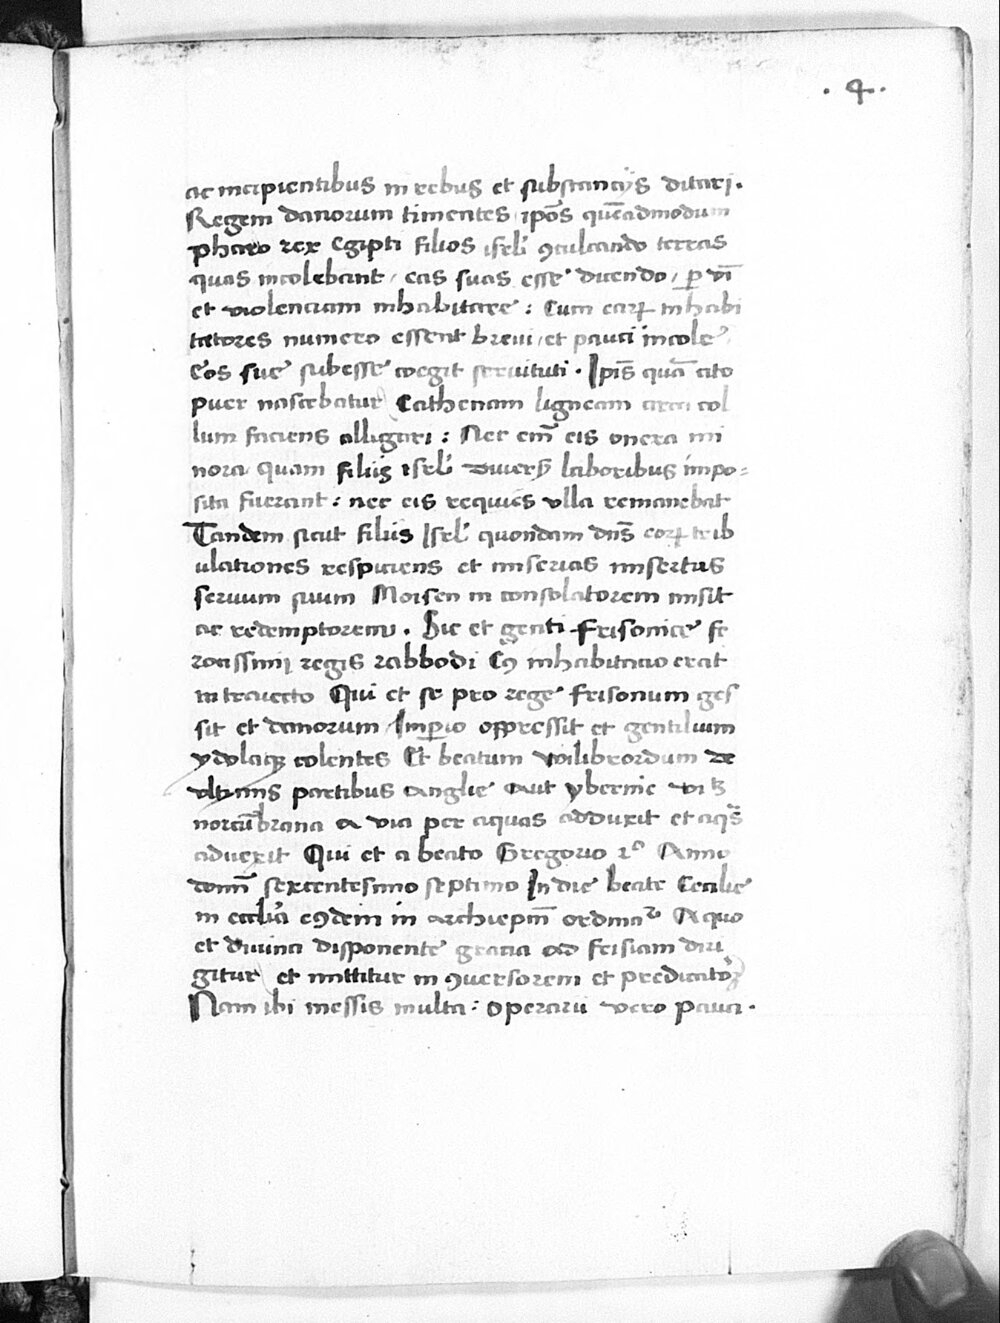 . 4 .
ac incipientibus in rebus et substancijs ditari .
Regem danorum timentes ip̄os quēadmodum
pharo rex Egipti filios isrl̄ ꝯculcando terras
quas incolebant / eas suas esse dicendo / ꝑ vī
et violenciam inhabitare : Cum earꝝ inhabi
tatores numero essent breui / et pauci incole
Eos sue subesse coegit seruituti . Ip̄is quā cito
puer nascebatur Cathenam ligneam circa col
lum faciens alligari : Nec em̄ eis onera mi
nora quam filijs isrl̄ diuersꝭ laboribus impo=
sita fuerant : nec eis requies vlla remanebat
Tandem sicut filijs Isrl̄ quondam dn̄s eorꝝ trib
ulationes respiciens et miserias misertus
seruum suum Moisen in consolatorem misit
ac redemptorem . Sic et genti Frisonice fe
rocissimi regis rabbodi Cꝯ inhabitacio erat
in traiecto Qui et se pro rege frisonum ges
sit et danorum Imꝑio oppressit et gentilium
ydolatrꝝ colentes Et beatum wilibrordum de
vltimis partibus anglie aut ybernie vi tꝫ
nortūbrana a via per aquas adduxit et aqꝭ
aduexit Qui et a beato Gregorio 2º Anno
domī sexcentesimo septimo In die beate Cecilie
in eccl̄ia eꝯdem in archiep̄m ordinaᵗ A quo
et diuina disponente gracia ad frisiam diri
gitur et mittitur in ꝯuersorem et predicatoꝝ
Nam ibi messis multa : operarii vero pauci .